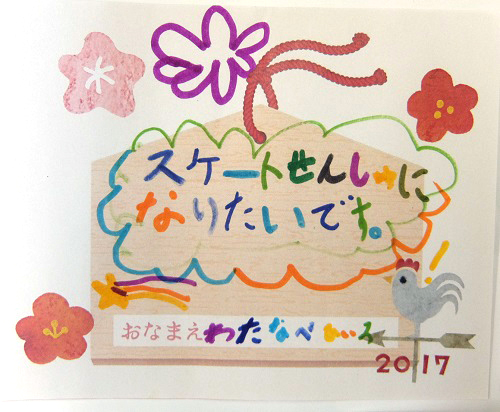 スケートせんしゅに
なりたいです。
おなまえ わたなべ
2017